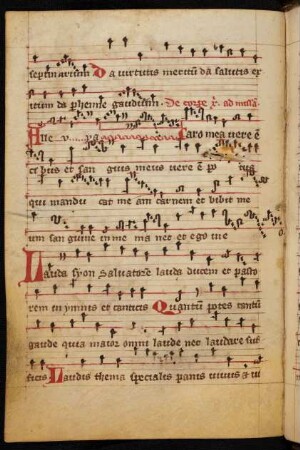 septinarium Da virtutis meritum da salutis ex
itum da phenne gaudium. De corpe xr. ad missā.
Alle v ya Caro mea vere ē
et san guis meus vere ē po tus
qui mandu cat me am carnem et bibit me
um san guine in me ma net et ego in e
Lauda syon Salvatorē lauda ducem et pasto
rem in ymnis et canticis Quantū potes tantū
gaude quia maior omni laude nec laudare suf
ficis Laudis thema specialis panis vivus et vi